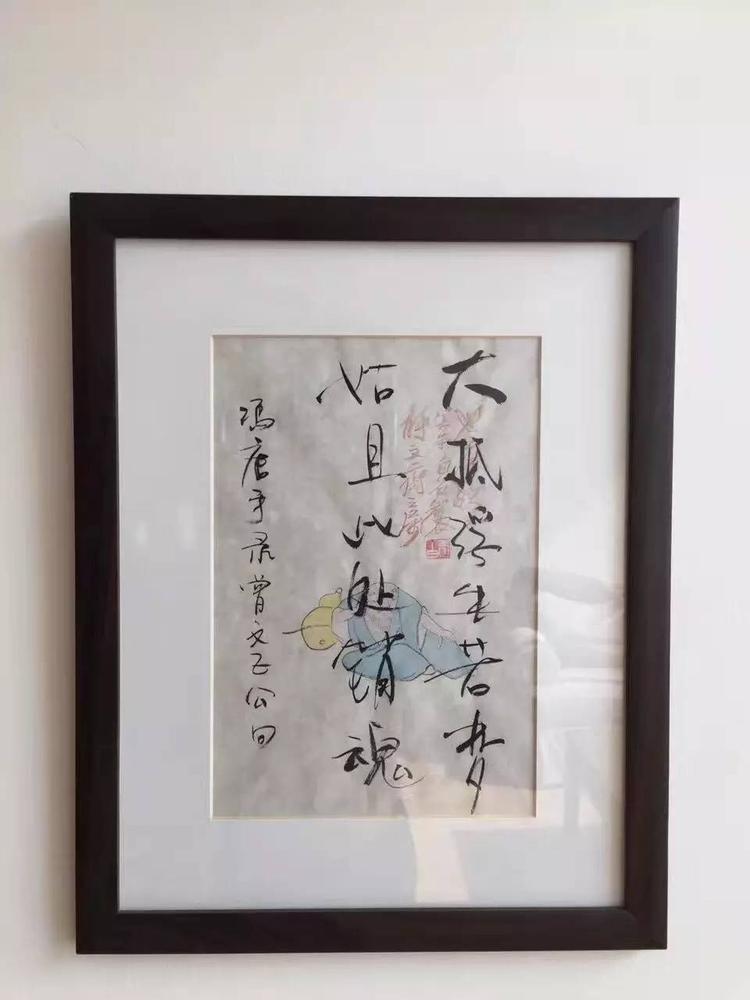 大抵浮生若梦
姑且此处销魂
冯唐手录曾文正公句